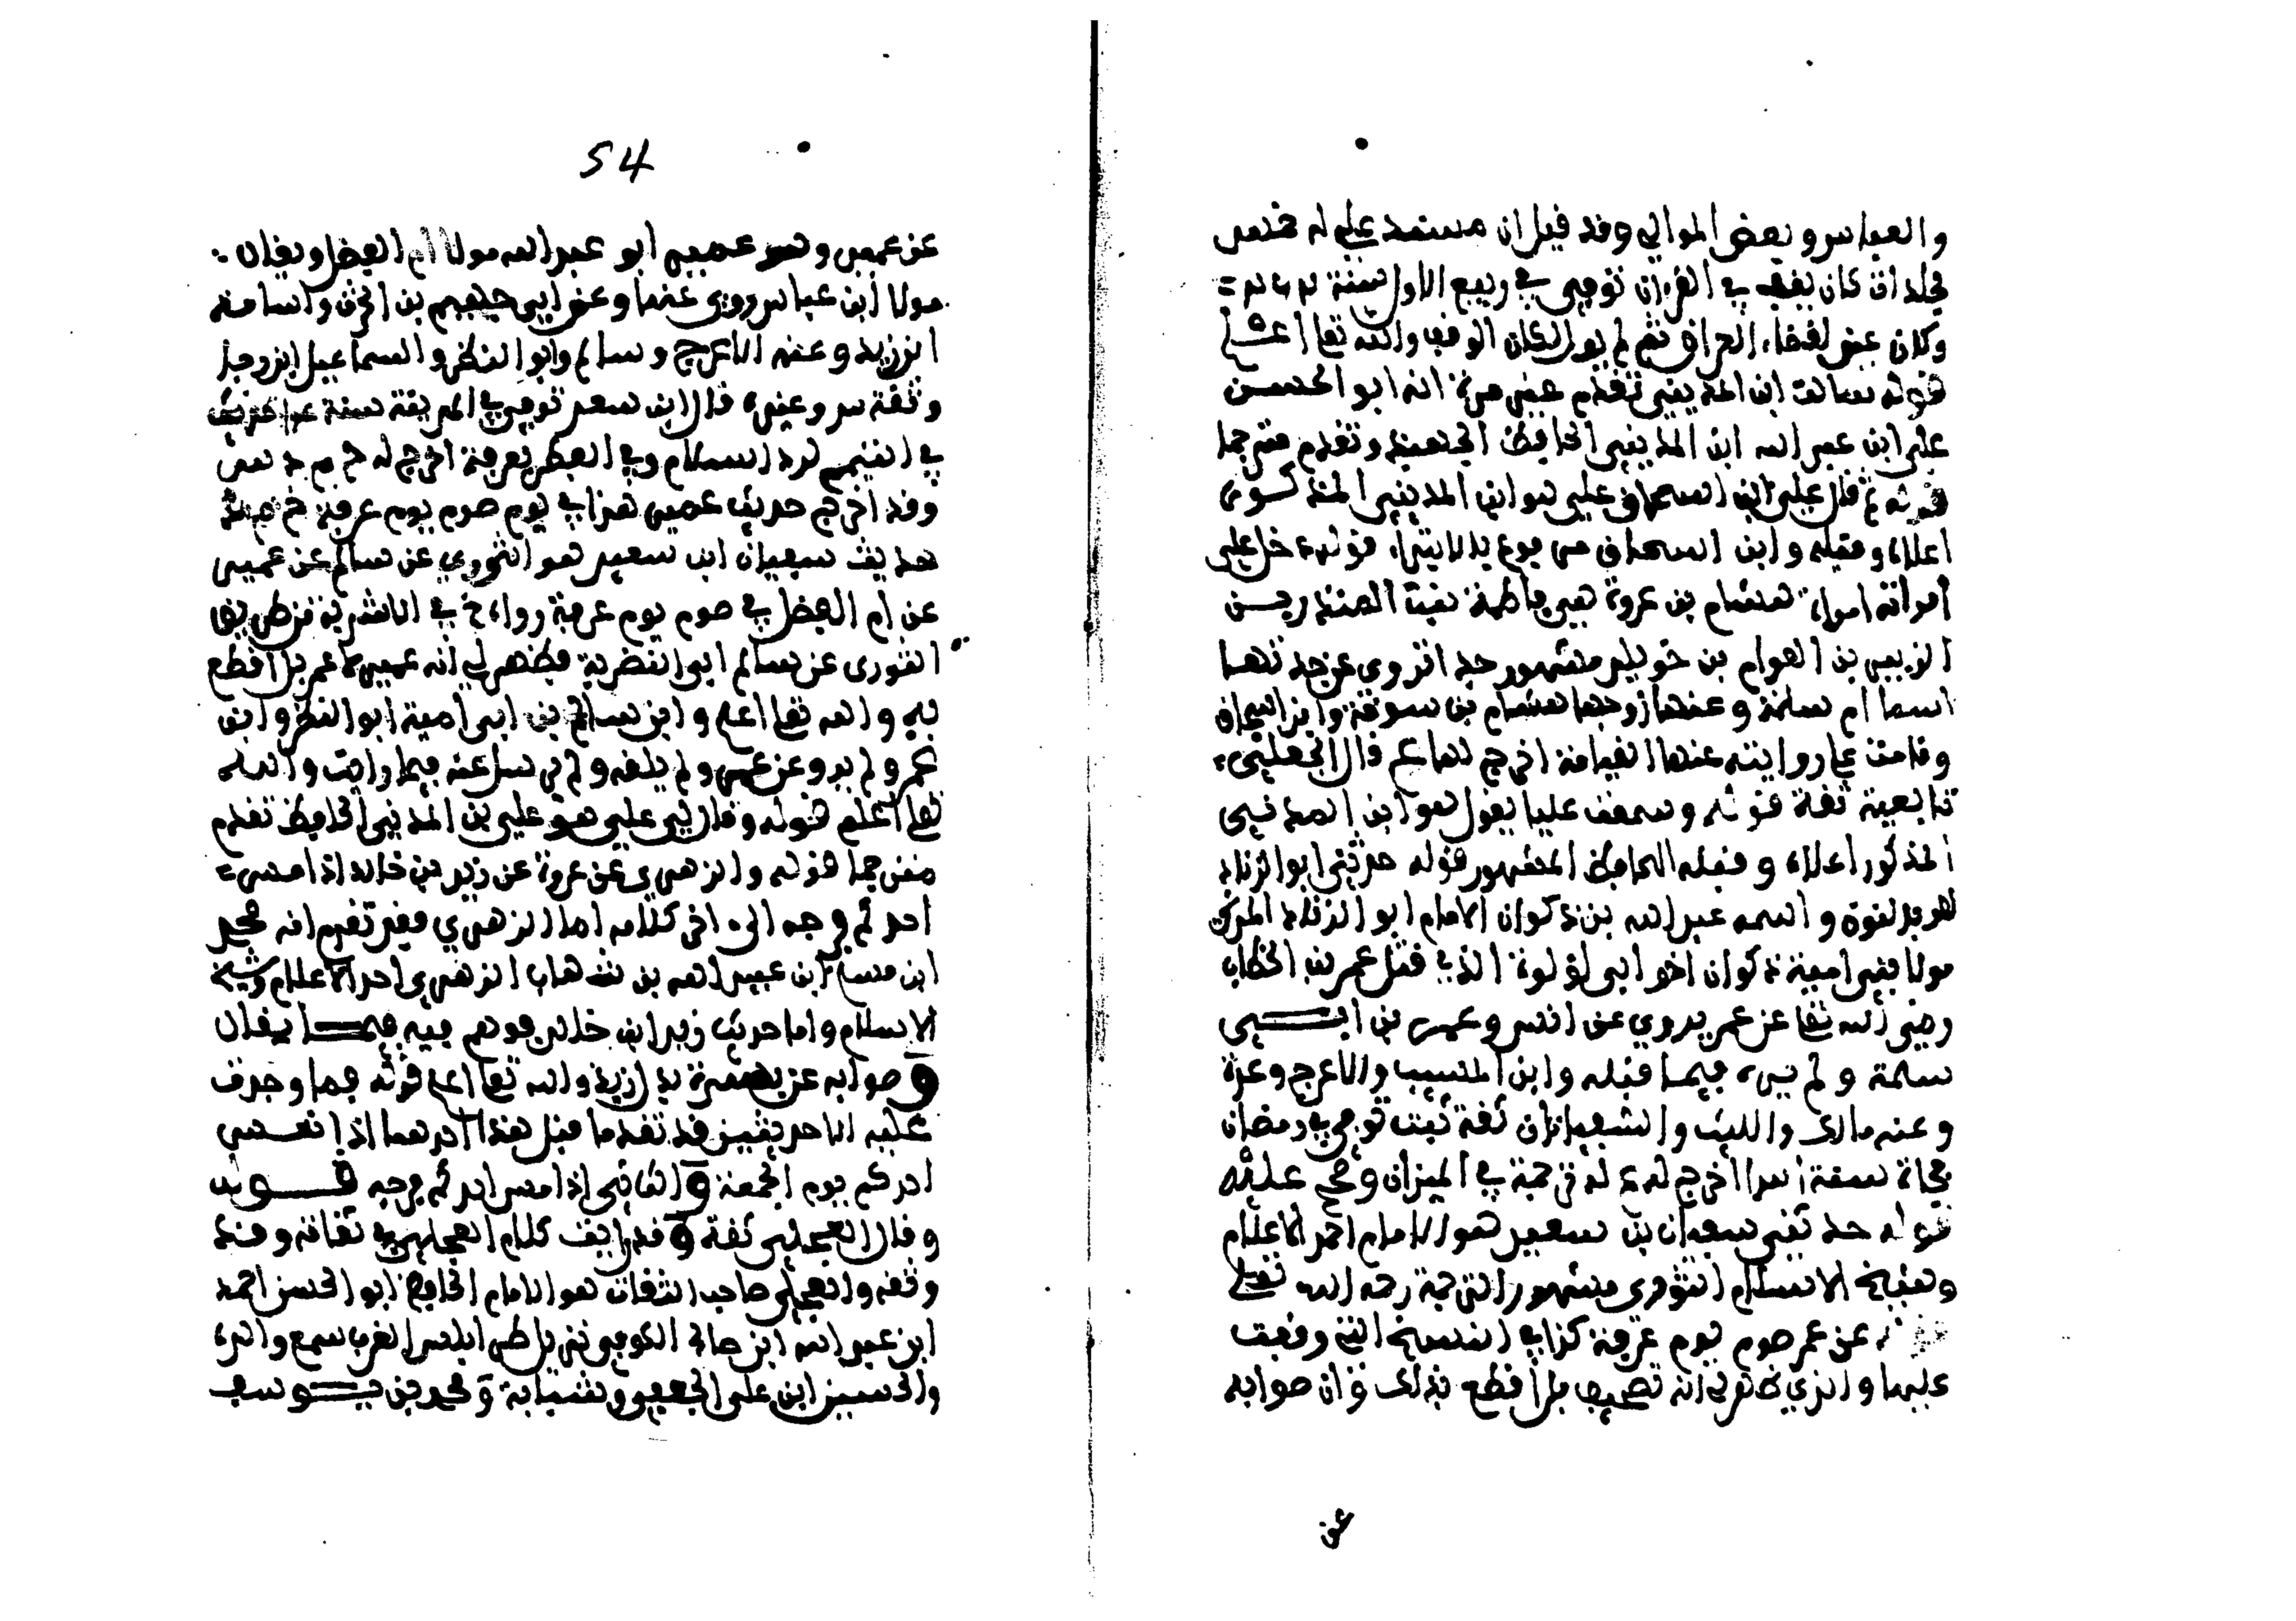 والعباس وبعض الموالي وقد قيل ان مسنده علي له خمس
مجلدات كان يقف في القرآن توفي في ربيع الاول سنة
وكان عفى لقضاء العراق ثم لم يول لمكان الوقف والله تعا اعلم
قوله سالت ابن المديني تقدم غير مرة انه ابو الحسن
علي ابن عبد الله ابن المديني الحافظ الجهبذ وتقدم مترجما
قوله قال علي ابن اسحاق علي هو ابن المديني المذكور
اعلاه وقبله وابن اسحاق مرفوع بالابتداء قوله دخل على
امرأته امراة هشام بن عروة هي فاطمة بنت المنذر بن
الزبير بن العوام بن خويلد مشهورة جدا تروي عن جدتها
اسما ام سلمة وعنها زوجها هشام بن سوقة وابن اسحاق
وقامت على روايته عنها القيامة اخرج لها ع قال العجلي
تابعية ثقة قوله وسمعت عليا يقول هو ابن المديني
المذكور اعلاه وقبله الحافظ المشهور قوله حدثني ابو الزناد
هو بالنون واسمه عبد الله بن ذكوان الامام ابو الزناد المدني
مولا بني امية ذكوان اخو ابي لؤلؤة الذي قتل عمر بن الخطاب
رضي الله تعا عن عمر يروي عن انس وعمر بن ابي
سلمة ولم يره فيما قبله وابن المسيب والاعرج وعدة
وعنه مالك والليث والسفيانان ثقة ثبت توفي في رمضان
فجاة سنة اسا اخرج له ع له ترجمة في الميزان وصح عليه
قوله حدثني سفيان بن سعيد هو الامام احد الاعلام
وشيخ الاسلام الثوري مشهور الترجمة رحمه الله تعا
عن عمر صوم يوم عرفة كذا في النسخ التي وقفت
عليها والذي ظهر لي انه تصحيف بل اقطع بذلك وان صوابه
عن
54
عن عمير وهو عمير ابو عبد الله مولا ام الفضل ويقال
مولا ابن عباس روى عنهما وعن ابي جهيم بن الحرث واسامة
ابن زيد وعنه الاعرج وسالم وابو النضر واسماعيل ابن رجا
وثقه س وغيره قال ابن سعد توفي في المدينة سنة عدا حديثه
في التيمم لرد السلام وفي الفطر بعرفة اخرج له خ م د س
وقد اخرج حديث عمير هذا في يوم صوم يوم عرفة خ م د
حديث سفيان ابن سعيد هو الثوري عن سالم عن عمير
عن ام الفضل في صوم يوم عرفة رواه خ في الاشربة من طريق
الثوري عن سالم ابي النضر به فظهر لي انه عمير لا عمر بل اقطع
به والله تعا اعلم واين سالم بن ابي امية ابو النضر وابن
عمر ولم يرو عن عمر ولم يلقه ولم يرسل عنه فيما رايت والله
تعا اعلم قوله وقال لي علي هو علي بن المديني الحافظ تقدم
مترجما قوله والزهري عن عروة عن زيد بن خالد اذا مس
احدكم فرجه الى اخر كلامه اما الزهري فقد تقدم انه محمد
ابن مسلم ابن عبيد الله بن شهاب الزهري احد الاعلام وشيخ
الاسلام واما حديث زيد ابن خالد فوهم فيه فيما يقال
و صوابه عن بسرة بدل زيد والله تعا اعلم قوله هما وحذف
عليه الا حديثين قد تقدما قبل هذا احدهما اذا نعس
احدكم يوم الجمعة و الثاني اذا مس احدكم فرجه قوله
وقال العجلي ثقة و قد رايت كلام العجلي في ثقاته وقد
وثقه والعجلي صاحب الثقات هو الامام الحافظ ابو الحسن احمد
ابن عبد الله ابن صالح الكوفي نزيل طرابلس الغرب سمع والده
والحسين ابن علي الجعفي وشبابة و محمد بن يوسف